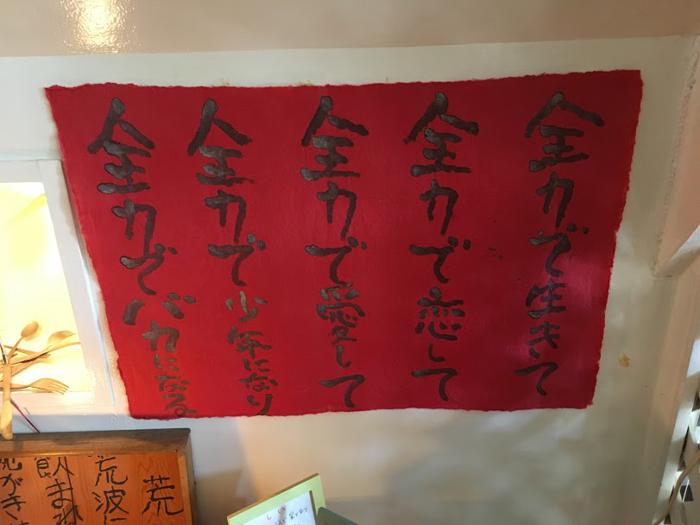 全力で生きて
全力で恋して
全力で愛して
全力で少年になり
全力でバカになる
荒
荒波に
飲まれ